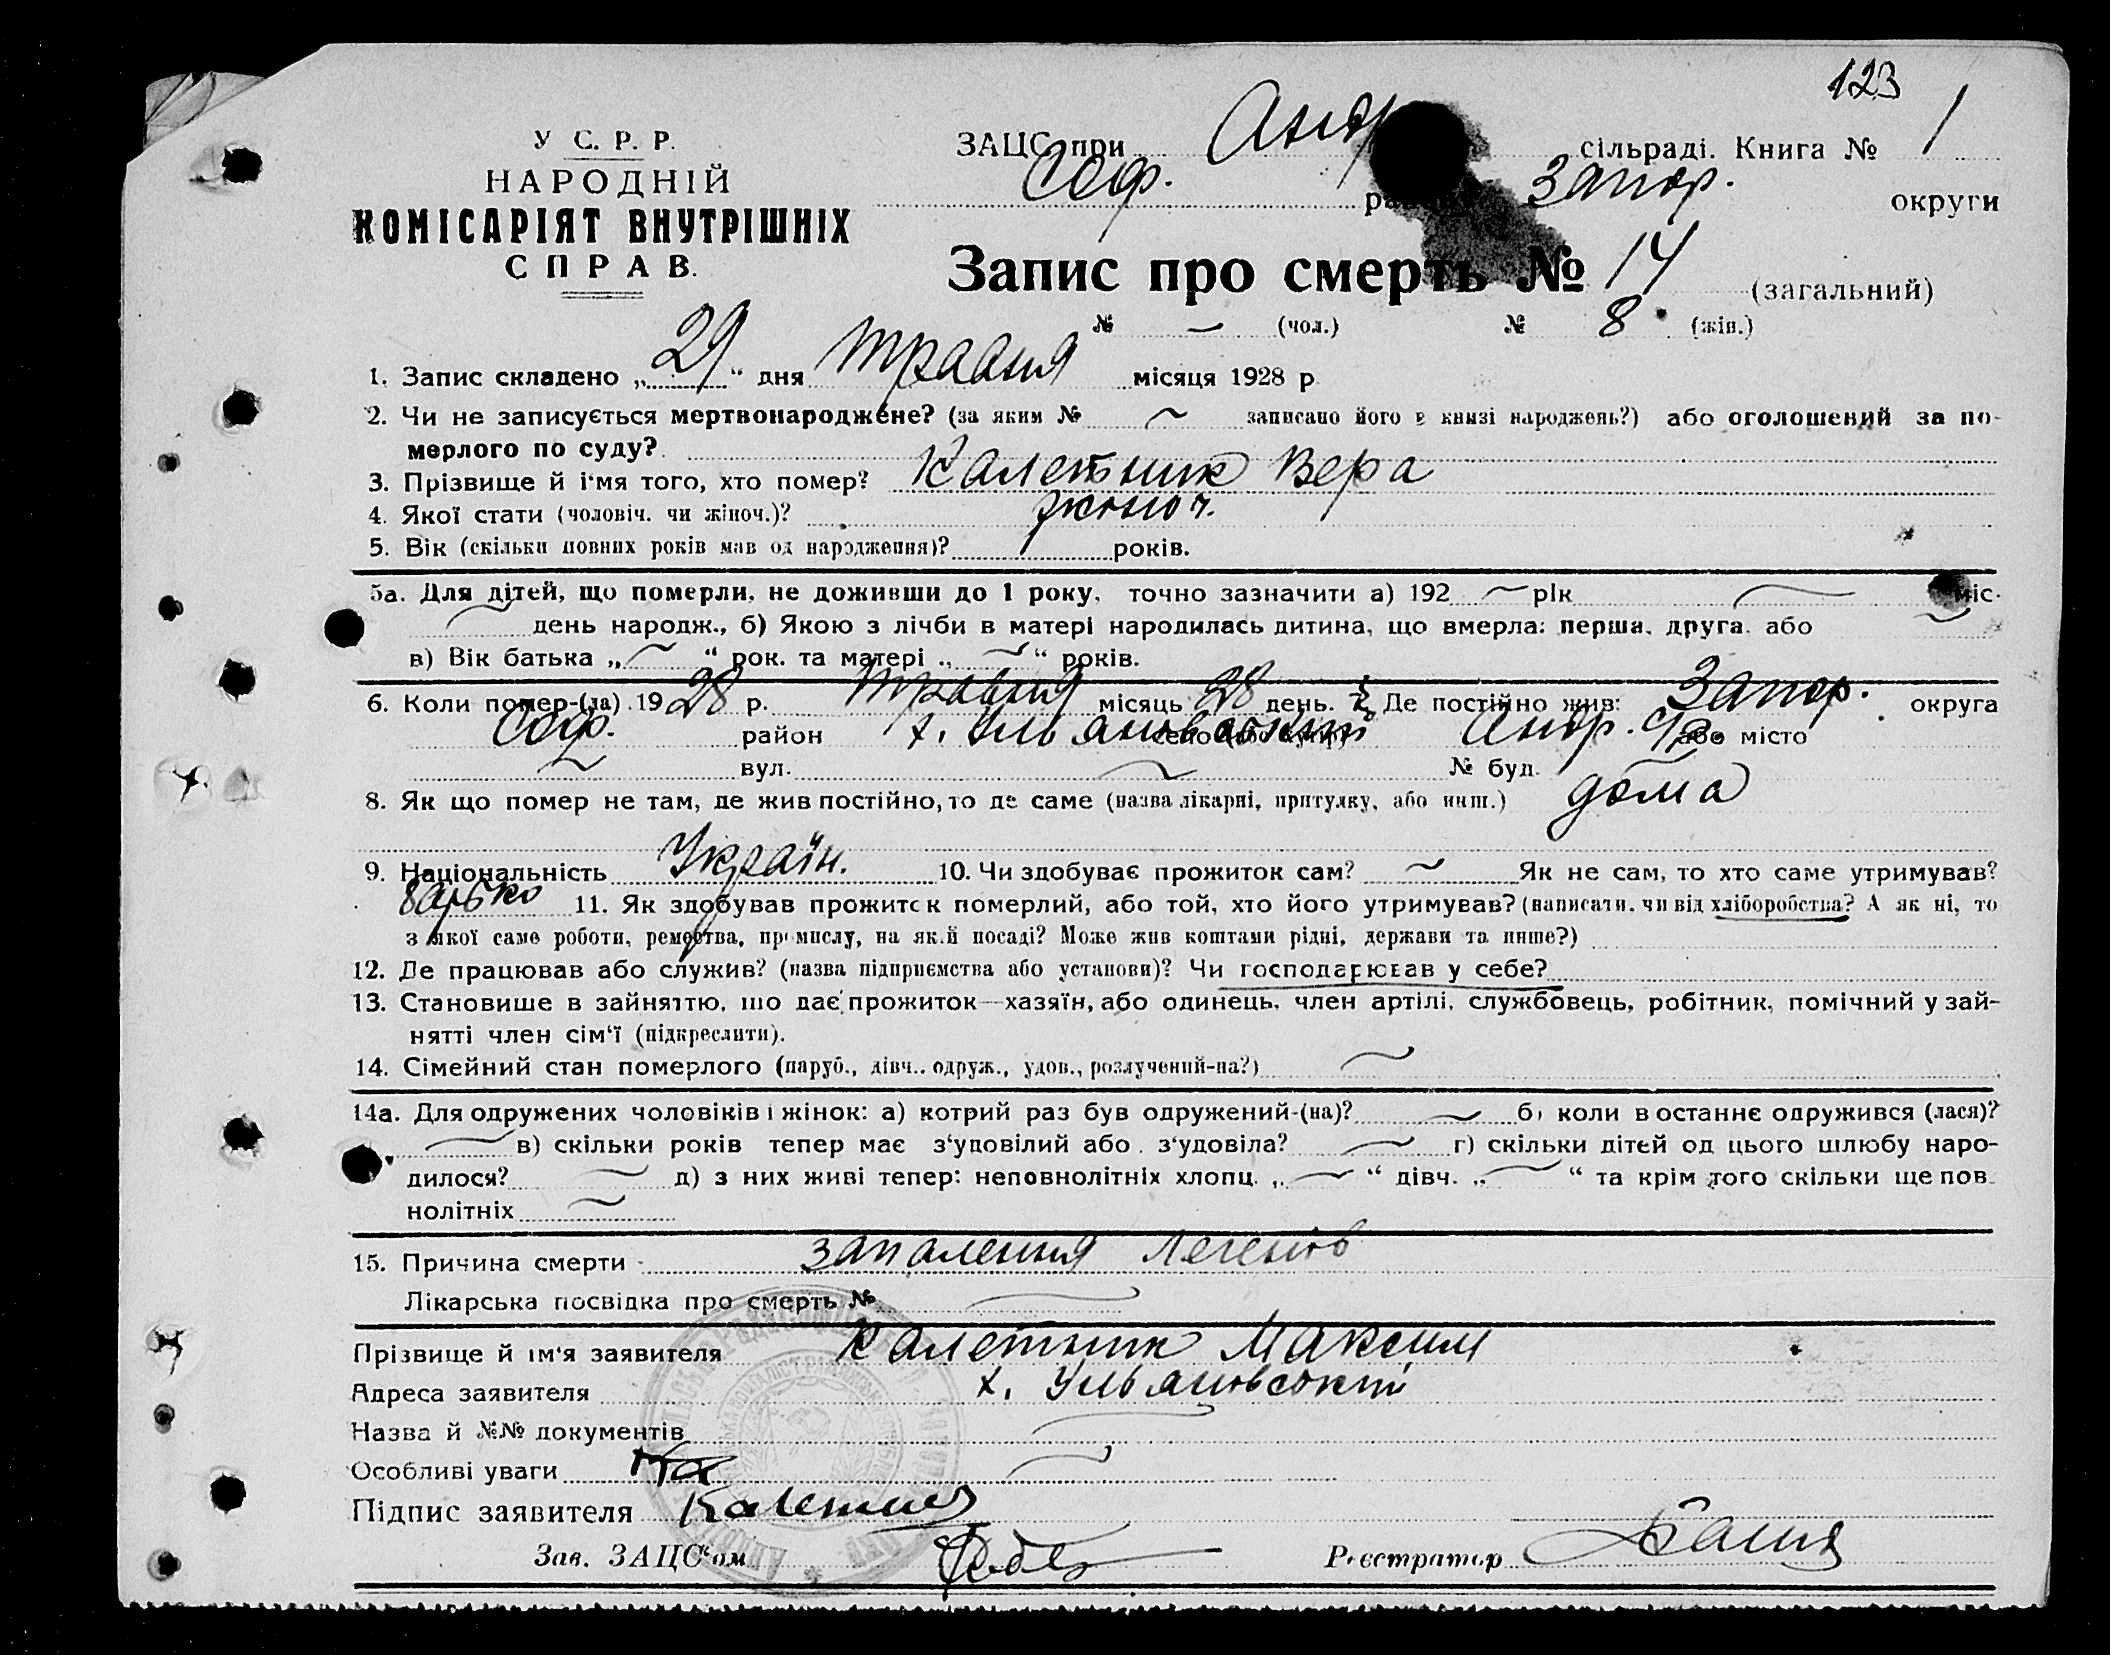 123
У С. Р. Р.
НАРОДНІЙ
КОМІСАРІЯТ ВНУТРІШНІХ
СПРАВ.
ЗАЦС при Андр сільраді. Книга № 1
Соф. Запор. округи
Запис про смерть № 14 (загальний)
№ — (чол.) № 8. (жін.)
1. Запис складено „29“ дня травня місяця 1928 р
2. Чи не записується мертвонароджене? (за яким № ~ записано його в книзі народжень?) або оголошений за по-
мерлого по суду?
3. Прізвище й ім'я того, хто помер? Калетник Вера
4. Якої стати (чоловіч. чи жіноч.)? жіноч.
5. Вік (скільки повних років мав од народження)? 1 років.
5а. Для дітей, що померли, не доживши до 1 року, точно зазначити а) 192 ~ рік ~ міс.
~ день народж., б) Якою з лічби в матері народилась дитина, що вмерла: перша, друга або ~
в) Вік батька „~“ рок. та матері „~“ років.
6. Коли помер-(ла) 1928 р. травня місяць 28 день. 7. Де постійно жив: Запор. округа
Соф. район х. Ульяновський Андр. с/р або місто
~ вул. ~ № буд.
8. Як що помер не там, де жив постійно, то де саме (назва лікарні, притулку, або инш.) дома
9. Національність Україн. 10. Чи здобуває прожиток сам? ~ Як не сам, то хто саме утримував?
батько 11. Як здобував прожиток померлий, або той, хто його утримував? (написати, чи від хліборобства? А як ні, то
з якої саме роботи, ремества, промислу, на якій посаді? Може жив коштами рідні, держави та инше?)
12. Де працював або служив? (назва підприємства або установи)? Чи господарював у себе?
13. Становище в зайняттю, що дає прожиток—хазяїн, або одинець, член артілі, службовець, робітник, помічний у зай-
нятті член сім'ї (підкреслити).
14. Сімейний стан померлого (паруб., дівч., одруж., удов., розлучений-на?) ~
14а. Для одружених чоловіків і жінок: а) котрий раз був одружений-(на)? ~ б) коли в останнє одружився (лася)?
~ в) скільки років тепер має з'удовілий або з'удовіла? ~ г) скільки дітей од цього шлюбу наро-
дилося? ~ д) з них живі тепер: неповнолітніх хлопц. „~“ дівч. „~“ та крім того скільки ще пов-
нолітніх ~
15. Причина смерти запалення легенів
Лікарська посвідка про смерть № ~
Прізвище й ім'я заявителя Калетник Максим
Адреса заявителя х. Ульяновський
Назва й №№ документів ~
Особливі уваги ~
Підпис заявителя Калетник
Зав. ЗАЦС'ом
Реєстратор